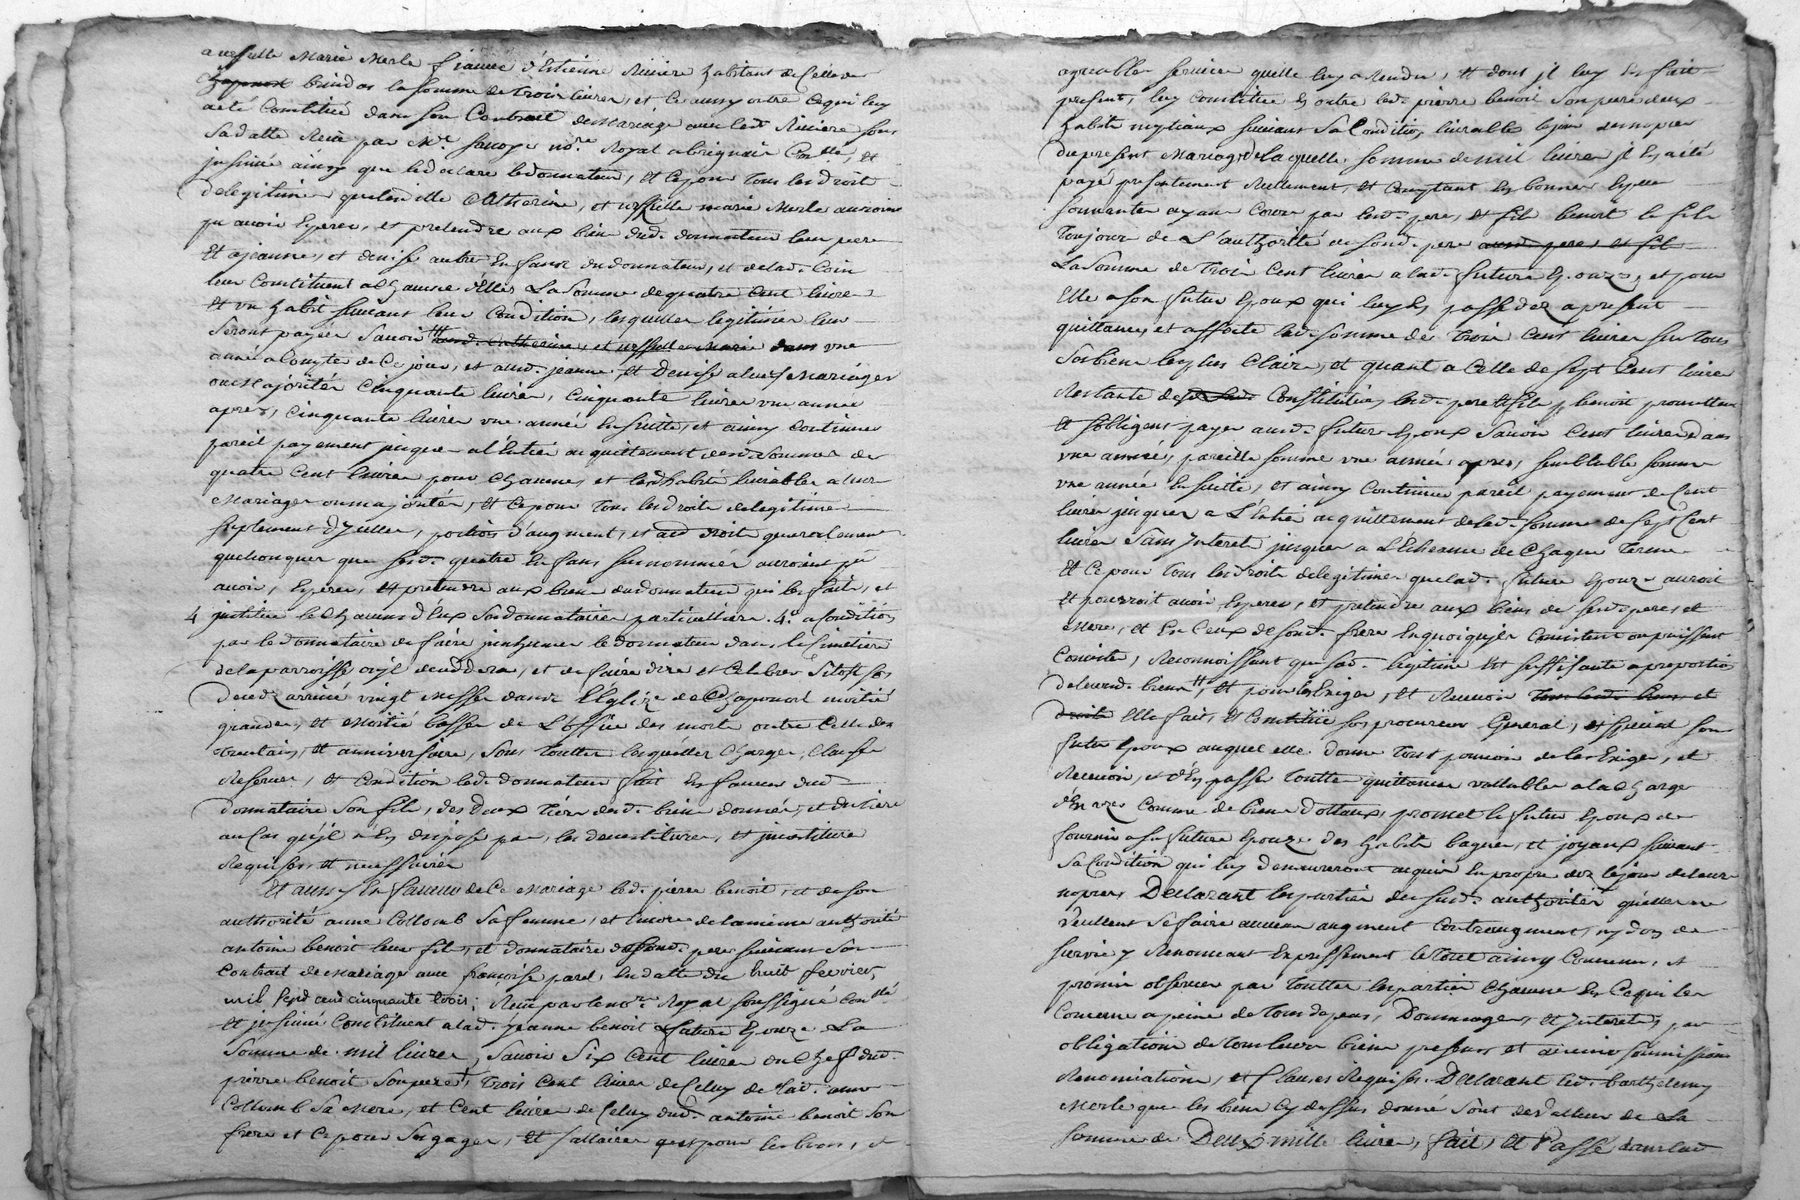 a urssulle Marie Merle fiancée d'Estienne Riviere habitant de
brindas la somme de trois livres, et ce aussy outre ce qui luy
a eté Constitué dans son Contract de Mariage avec led. Riviere sous
sa datte Reçu par Me. nore. Royal a brignais Conllé, et
jnsinué ainsy que le declare le donnateur, et ce pour tous les droits
de legitimes que lesd. Catherine, et urssulle marie Merle auroient
pu avoir Esperer, et pretendre aux biens dud. donnateur leur pere
Et a jeanne, et denise autres Enfans dudonnateur, et de lad. Coin
leur Constituent a chacune d'Elles La Somme de quatre Cent livres
et un habit suivant leur Condition, lesquelles legitimes leur
seront payées savoir aud. Catherine, et urssulle Marie dans une
année a Compte de Ce jour, et aud. jeanne, et Denise a leurs Mariages
ou Majorités Cinquante livres, Cinquante livres une année
apres, Cinquante livres une année Ensuitte, et ainsy Continuer
pareil payement jusques a l'Entier acquittement desd. Sommes de
quatre Cent livres pour Chacunes, et lesd. habits livrables a leur
Mariages ou majorités, Et Ce pour tous les droits de legitimes
suplement d'Jcelles, portions d'augment, et aud. droits generalement
quelconques que sesd. quatre Enfans susnommés auroient pu
avoir, Esperer, Et pretendre aux biens dudonnateur qui les fait, et
4 jnstitue le Chacuns d'Eux Ses donnataires particulliers. 4.° a Condition
par le donnataire de faire jnhumer le donnateur dans le Cimetiere
de la parroisse ou jl decedera, et de faire dire et Celebrer Sitost son
decedz arrivé vingt Messes dans l'Eglise de Chaponost moitié
grandes, et Moitié basses de L'office des morts outre Celles des
trentain, et anniversaire, Sous touttes lesquelles Charges, Clauses
Reserves, Et Condition led. donnateur fait En faveur dud.
donnataire Son fils, des deux tiers desd. biens donnés, et du tiers
au Cas qu'jl n'En dispose pas, les devestitures, Et jnvestiture
Requises, et necessaires
Et aussy En faveur de Ce Mariage led. pierre benoit, et de son
authorité anne Collomb Sa femme, et Encore de la même authorité
antoine benoit leur fils, et donnataire de sond. pere suivant Son
Contrat de Mariage avec françoise parel En datte du huit fevrier,
mil Sept cent cinquante trois, Reçu par le nore. Royal soussigné Conllé
Et jnsinué Constituent a lad. jeanne benoit future Epouze La
Somme de mil livres, Savoir Six Cent livres du Chef dud.
pierre benoit Son pere, trois Cent livres de Celuy de lad. anne
Collomb Sa Mere, et Cent livres de Celuy dud. antoine benoit Son
frere et Ce pour Ses gages, Et Sallaires que pour les bons, et
agreables services qu'elle luy a Rendu, Et dont jl luy En fait
present, luy Constitue En outre led. pierre benoit Son pere deux
habits nuptiaux suivant Sa Condition, livrables le jour des nopces
du present Mariage de laquelle Somme de mil livres jl En a été
payé presentement Reellement, et Comptant En bonnes Especes
sonnantes ayant Cours par lesd. pere, et fils benoit le fils
toujours de L'authorité de Sond. pere aud. pere et fils
La Somme de trois Cent livres a lad. future Epouze, et pour
Elle a son futur Epoux qui luy En passe dez a present
quittance, et affecte led. Somme de trois Cent livres sur tous
Ses biens les plus Clairs, et quant a Celle de Sept Cent livres
Restante de Constitution lesd. pere et fils benoit promettent
Et s'obligent payer aud. futur Epoux Savoir Cent livres dans
une année, pareille Somme une année apres, semblable Somme
une année Ensuitte, et ainsy Continuer pareil payement de Cent
livres jusques a L'Entier acquittement de lad. Somme de Sept Cent
livres Sans Jnteret jusques a L'Echeance de Chaque terme
Et Ce pour tous les droits de legitimes que lad. future Epouze auroit
Et pourroit avoir Esperer, et pretendre aux biens de Sesd. pere, et
Mere, et En Ceux de Sond. frere En quoi qu'jls Consistent ou puissent
Consister, Reconnoissant que Sad. legitime Est suffisante a proportion
de leursd. biens, Et pour les Exiger, et Recevoir tous lesd. biens et
droits Elle fait, et Constitue son procureur General, et special Son
futur Epoux auquel elle donne tout pouvoir de les Exiger, et
Recevoir, et d'En passer toutte quittance vallables a la Charge
d'En user Comme de biens dottaux, promet le futur Epoux de
fournir a sa future Epouze des habits bagues, et joyaux suivant
Sa Condition qui luy demeureront acquis En propre dez le jour de leur
nopces Declarant les parties de susd. authorités qu'elles ne
veullent Se faire aucun augment Contraugment, ny don de
survie y Renonçant Expressement Le tout ainsy Convenu, et
promis observer par touttes les parties Chacune En Ce qui les
Concerne a peine de tous depens, Dommages, et Jnterets, par
obligations de tous leurs biens presents et avenir soumissions
Renonciations, et Clauses Requises. Declarant led. barthelemy
Merle que les biens Cy dessus donné Sont de valleur de La
Somme de Deux mille livres, fait, Et Passé dans lad